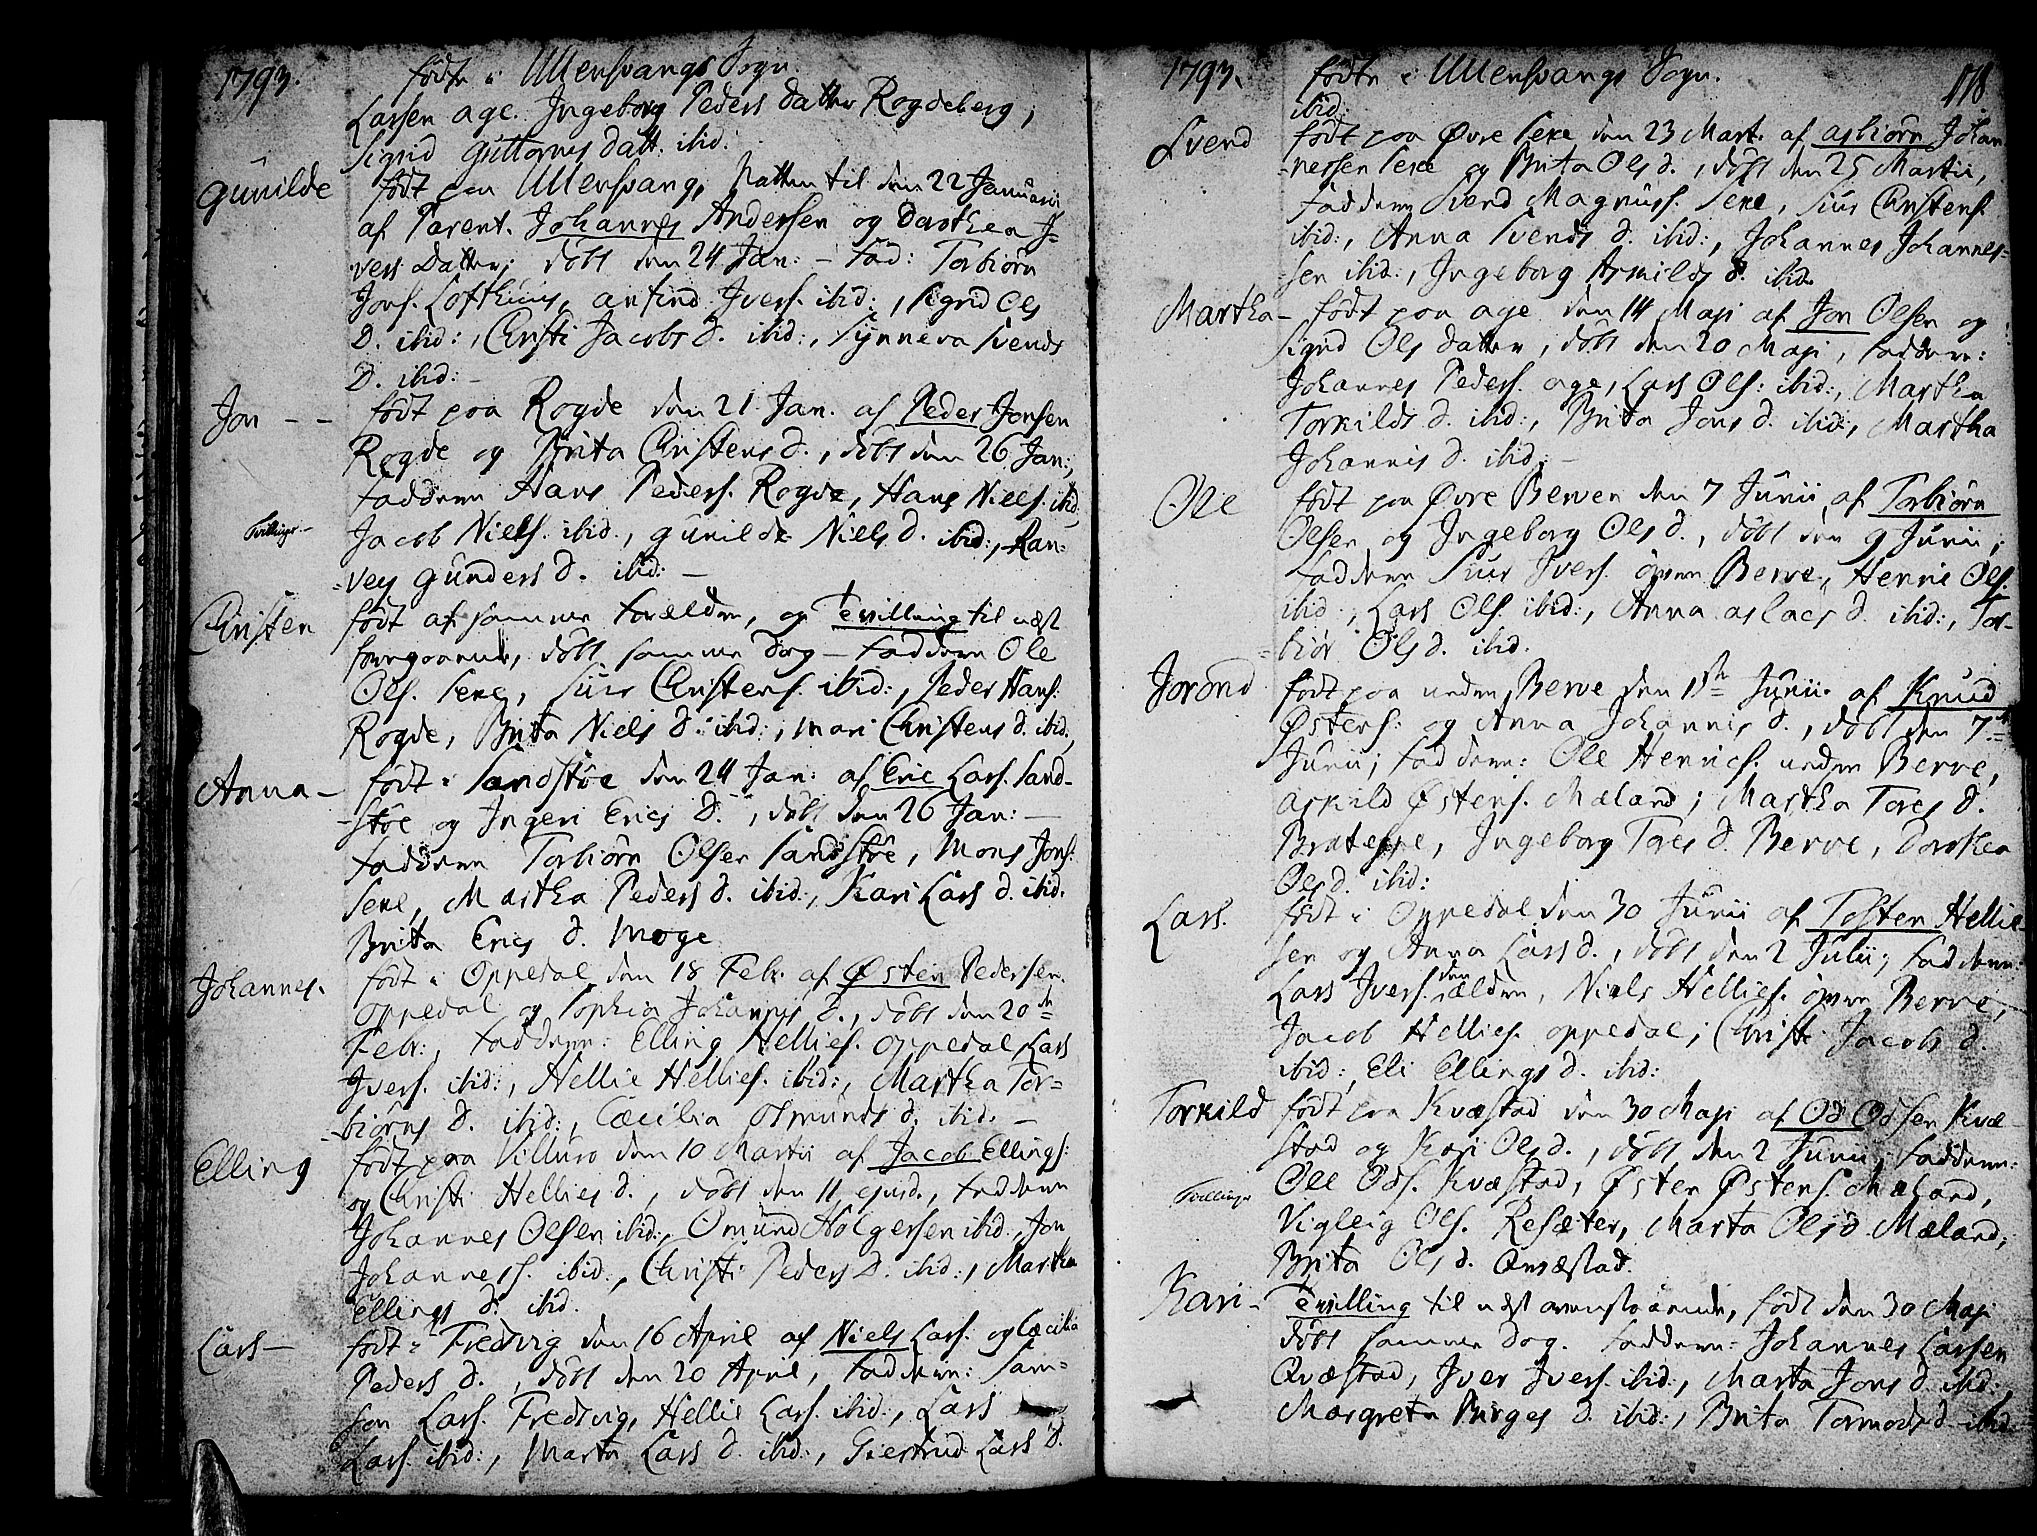 1793. fødte i Ullensvangs Sogn.
Larsen age. Ingeborg Peders Datter Rogdeberg,
Sigrid Guttorms datt. ibid.
Gunilde født paa Ullensvang, Natten til den 22 Januarii
af Parent. Johannes Andersen og Dorthea I-
vers Datter; døbt den 24 Jan: – Fad: Torbiørn
Jons. Lofthuus, arfind Ivers. ibid:, Sigrid Ols
D. ibid:, Christi Jacobs D. ibid:, Synneva Svends
D. ibid: –
Jon – – født paa Rogde den 21 Jan. af Peder Jonsen
Rogde og Brita Christens d., døbt den 26 Jan:,
Faddere Hans Peders. Rogde, Hans Niels. ibid,
Tvillinger – Jacob Niels. ibid., Gunilde Niels d. ibid:, Ran-
vey Gunders d. ibid: –
Christen født af samme Forældre, og Tvilling til næst
foregaaende, døbt samme dag – Faddere Ole
Ols. Sexe, Siur Christens. ibid:, Peder Hans:
Rogde, Brita Niels d. ibid:, Mari Christens d. ibid,
Anna – født i Sandstøe den 24 Jan: af Eric Lars. Sand-
støe og Ingeri Erics D., døbt den 26 Jan: –
Faddere Torbiørn Olsen Sandstøe, Mons Jons:
Sexe, Martha Peders d. ibid:, Kari Lars d. ibid.
Brita Erics d. Moge
Johannes. født i Oppedal den 18 Febr. af Østen Pedersen
oppedal og Sophia Johannis d., døbt den 20de
Febr:, Faddere: Elling Hellies. oppedal, Lars
Ivers. ibid:, Hellie Hellies. ibid:, Martha Tor-
biørns d. ibid:, Cæcilia Osmunds d. ibid. –
Elling født paa Villure den 10 Martii af Jacob Ellings:
og Christi Hellies d., døbt den 11 ejusd., Faddere
Johannes Olsen ibid:, Omund Holgersen ibid:, Jon
Johanness. ibid:, Christi Peders D. ibid:, Martha
Ellings d. ibid.
Lars – født i Fredvig den 16 April af Niels Lars. og Cæcilia
Peders d., døbt den 20 April, Faddere: Sam-
son Lars. Fredvig, Hellie Lars. ibid:, Lars
Lars. ibid:, Marta Lars d. ibid:, Giertrud Lars d.
1793. fødte i Ullensvangs Sogn. 178
ibid:
Svend født paa Øvre Sexe den 23 Mart. af asbiørn Johan-
nessen Sexe og Brita Ols d., døbt den 25 Martii,
Faddere Svend Magnuss. Sexe, Siur Christens.
ibid:, Anna Svends d. ibid:, Johannes Johannes-
sen ibid:, Ingeborg Arnilds d. ibid.
Martha – født paa age den 14 Maji af Jon Olsen og
Sigrid Ols Datter, døbt den 20 Maji, Faddere:
Johannes Peders. age, Lars Ols: ibid:, Martha
Torkilds d. ibid:, Brita Jons d. ibid:, Martha
Johannis d. ibid: –
Ole født paa Øvre Berven den 7 Junii af Torbiørn
Olsen og Ingeborg Ols d., døbt den 9 Junii,
Faddere Siur Ivers. øvre Berve, Henric Ols.
ibid:, Lars Ols. ibid:, Anna aslacs d. ibid:, Tor-
biør Ols d. ibid.
Jorond født paa neden Berve den 1ste Junii af Knud
Østens: og Anna Johannis d., døbt den 7de
Junii; Faddere: Ole Henrics. neden Berve,
Askild Østens. Mæland; Martha Tores d.
Brateppe, Ingeborg Tores d. Berve, Dorthea
Ols d. ibid:
Lars. født i Oppedal den 30 Junii af Tosten Hellie-
sen og Anna Lars d., døbt den 2 Julii; Faddere:
Lars Ivers. den ældre, Niels Hellies. øvre Berve,
Jacob Hellies. oppedal; Christi Jacobs d.
ibid:, Eli Ellings d. ibid:
Torkild født paa Kvæstad den 30 Maji af Od Odsen Kvæ-
stad og Kari Ols d., døbt den 2 Junii, Faddere:
Tvillinger Ole Ods. Kvæstad, Østen Østens. Mæland,
Vigleig Ols. Resæter, Marta Ols d. Mæland,
Brita Ols d. Qvæstad.
Kari – Tvilling til næst ovenstaaende, født den 30 Maji
døbt samme dag. Faddere: Johannes Larsen
Qvæstad, Iver Ivers. ibid:, Marta Jons d. ibid:,
Margreta Birges d. ibid:, Brita Tormods d. ibid: